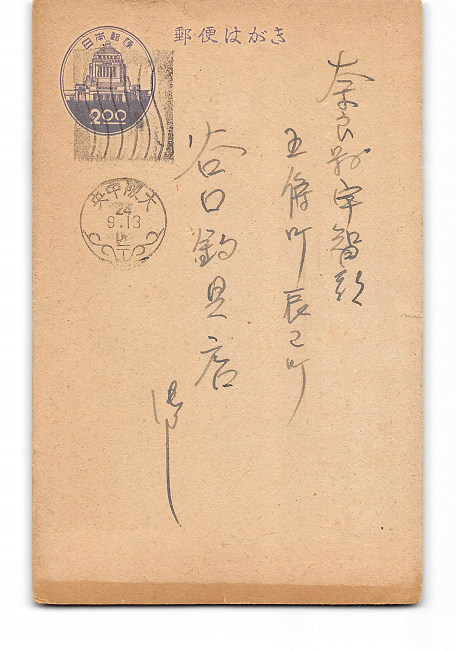 郵便はがき
日本郵便
2.00
大阪中央
24
9.13
奈良縣宇智郡
五條町辰己町
谷口釣具店